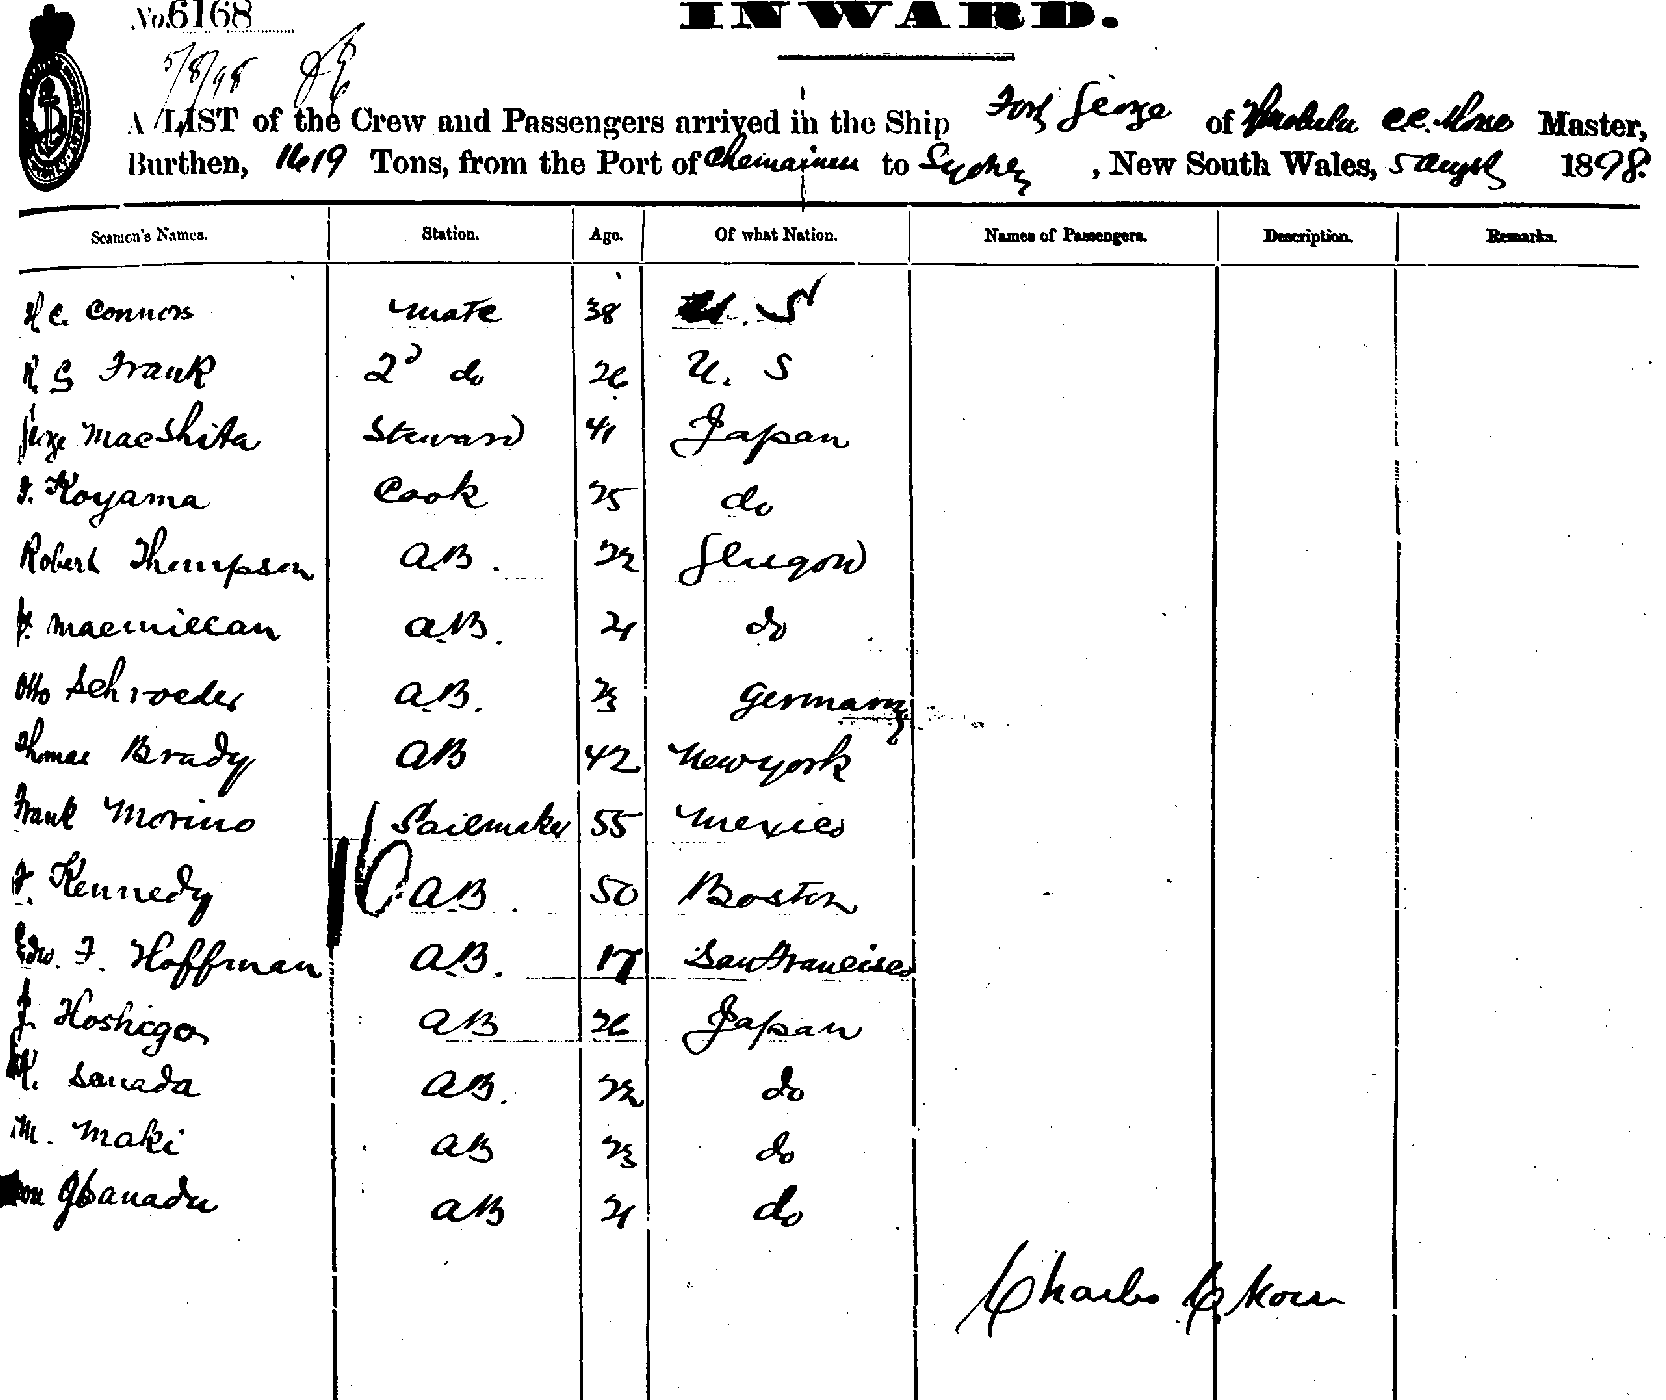 No. 6168
INWARD.
5/8/98
A LIST of the Crew and Passengers arrived in the Ship Fort George of Honolulu C.C. Morse Master,
Burthen, 1619 Tons, from the Port of Chemainus to Sydney, New South Wales, 5 August 1898.
Seamen's Names. Station. Age. Of what Nation. Names of Passengers. Description. Remarks.
H C. Connors mate 38 U. S
R S Frank 2d do 26 U. S
George MaeShita Steward 41 Japan
Koyama Cook 25 do
Robert Thompson AB. 22 Glasgow
macmillan AB. 21 do
Otto Schroeder AB. 23 Germany
Thomas Brady AB 42 New york
Frank Morino Sailmaker 55 Mexico
Kennedy AB. 50 Boston
16
Edw. F. Hoffman AB. 17 San Francisco
J. Hoshigo AB 26 Japan
K. Sanada AB. 22 do
M. Maki AB 23 do
AB 21 do
Charles C Morse